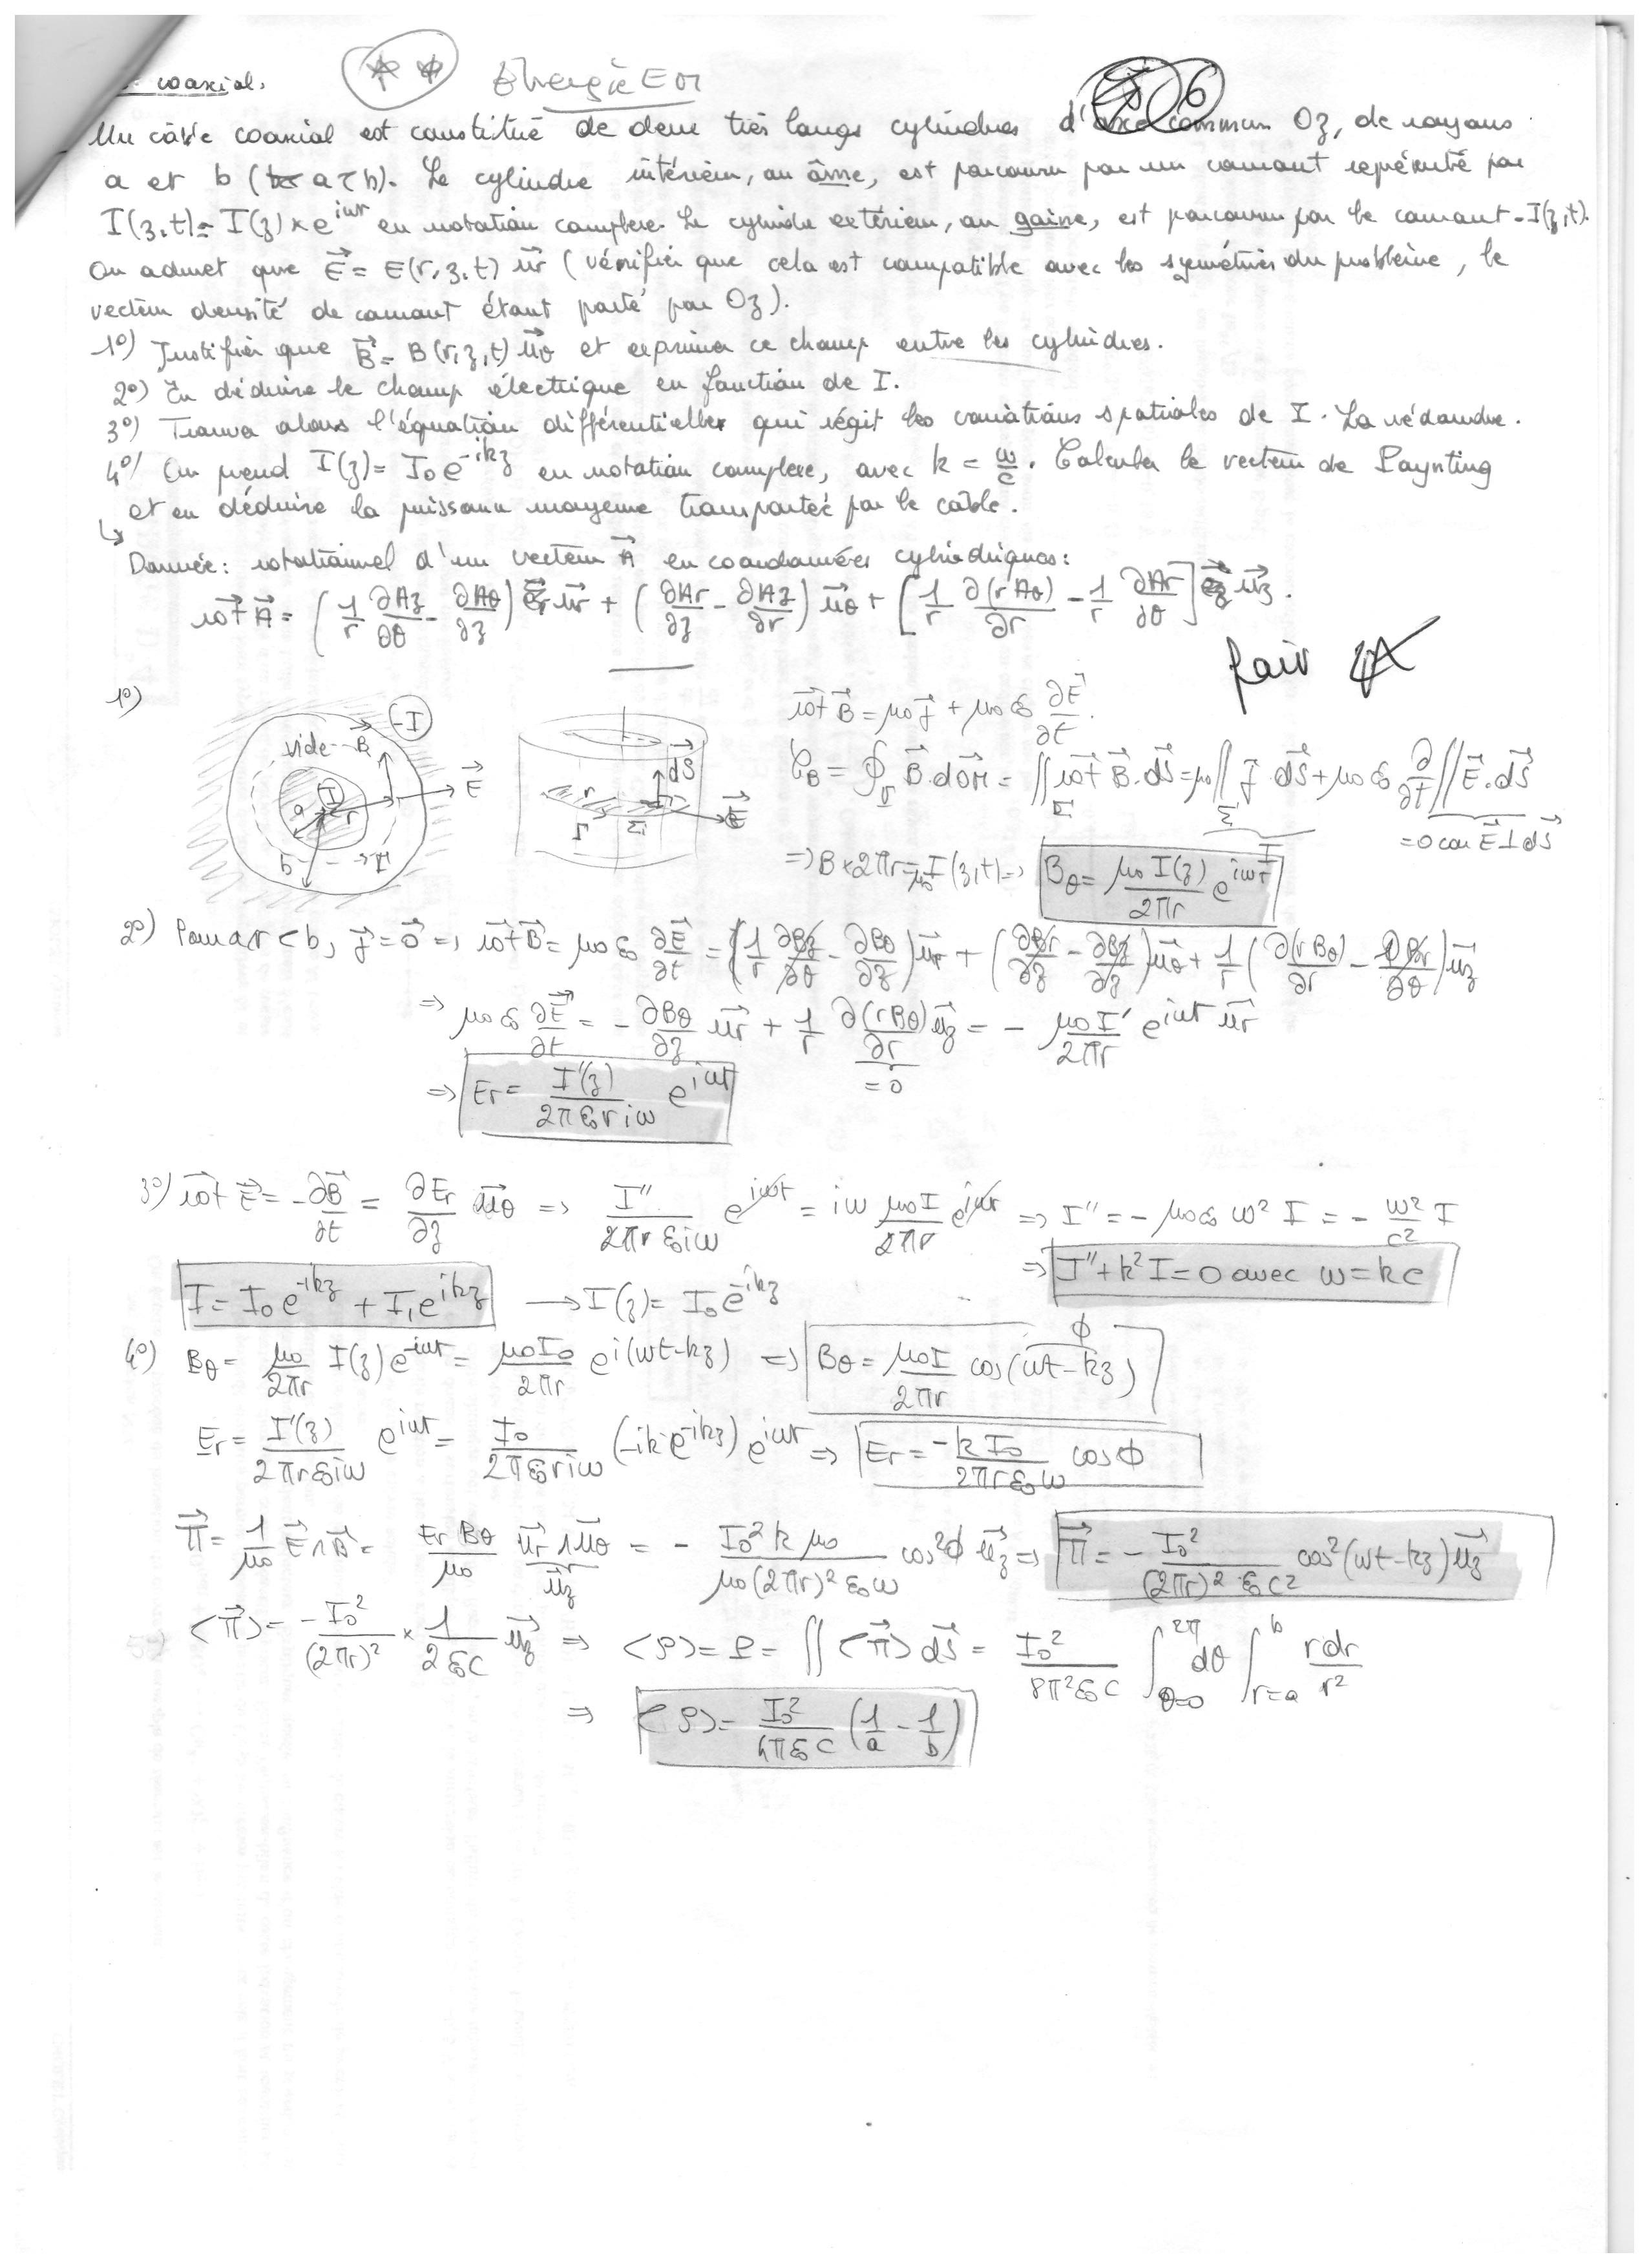 coaxial.
Energie EM
6
Un câble coaxial est constitué de deux très longs cylindres d'axe commun Oz, de rayons
a et b (a < b). Le cylindre intérieur, ou âme, est parcouru par un courant représenté par
I(z,t) = I(z) × e^{iωt} en notation complexe. Le cylindre extérieur, ou gaine, est parcouru par le courant -I(z,t).
On admet que \vec{E} = E(r,z,t) \vec{u_r} (vérifier que cela est compatible avec les symétries du problème, le
vecteur densité de courant étant porté par Oz).
1°) Justifier que \vec{B} = B(r,z,t) \vec{u_θ} et exprimer ce champ entre les cylindres.
2°) En déduire le champ électrique en fonction de I.
3°) Trouver alors l'équation différentielle qui régit les variations spatiales de I. La résoudre.
4°) On prend I(z) = I_0 e^{-ikz} en notation complexe, avec k = ω/c. Calculer le vecteur de Poynting
et en déduire la puissance moyenne transportée par le câble.
↳ Donnée : rotationnel d'un vecteur \vec{A} en coordonnées cylindriques :
\vec{rot} \vec{A} = (1/r ∂A_z/∂θ - ∂A_θ/∂z) \vec{u_r} + (∂A_r/∂z - ∂A_z/∂r) \vec{u_θ} + [1/r ∂(rA_θ)/∂r - 1/r ∂A_r/∂θ] \vec{u_z}.
1°)
-I
vide B
\vec{E}
I
a r
b Γ
\vec{dS}
r
Γ Σ \vec{E}
\vec{rot} \vec{B} = μ_0 \vec{j} + μ_0 ε_0 ∂\vec{E}/∂t.
C_B = ∮_Γ \vec{B}.d\vec{OM} = ∬_Σ \vec{rot} \vec{B}.d\vec{S} = μ_0 ∬_Σ \vec{j}.d\vec{S} + μ_0 ε_0 ∂/∂t ∬ \vec{E}.d\vec{S}
I
= 0 car \vec{E} ⊥ d\vec{S}
=> B × 2πr = μ_0 I(z,t) => B_θ = μ_0 I(z)/2πr e^{iωt}
2°) Pour a<r<b, \vec{j} = \vec{0} => \vec{rot} \vec{B} = μ_0 ε_0 ∂\vec{E}/∂t = (1/r ∂B_z/∂θ - ∂B_θ/∂z) \vec{u_r} + (∂B_r/∂z - ∂B_z/∂z) \vec{u_θ} + 1/r (∂(rB_θ)/∂r - ∂B_r/∂θ) \vec{u_z}
=> μ_0 ε_0 ∂\vec{E}/∂t = - ∂B_θ/∂z \vec{u_r} + 1/r ∂(rB_θ)/∂r \vec{u_z} = - μ_0 I'/2πr e^{iωt} \vec{u_r}
= 0
=> E_r = I'(z)/2πε_0 r iω e^{iωt}
3°) \vec{rot} \vec{E} = - ∂\vec{B}/∂t = ∂E_r/∂z \vec{u_θ} => I''/2πr ε_0 iω e^{iωt} = iω μ_0 I/2πr e^{iωt} => I'' = - μ_0 ε_0 ω² I = - ω²/c² I
=> I'' + k² I = 0 avec ω = kc
I = I_0 e^{-ikz} + I_1 e^{ikz} → I(z) = I_0 e^{-ikz}
4°) B_θ = μ_0/2πr I(z) e^{-iωt} = μ_0 I_0/2πr e^{i(ωt-kz)} => B_θ = μ_0 I/2πr cos(ωt-kz)
ϕ
E_r = I'(z)/2πr ε_0 iω e^{iωt} = I_0/2πε_0 r iω (-ik e^{-ikz}) e^{iωt} => E_r = -k I_0/2πr ε_0 ω cos ϕ
\vec{Π} = 1/μ_0 \vec{E} ∧ \vec{B} = E_r B_θ/μ_0 \vec{u_r} ∧ \vec{u_θ} = - I_0² k μ_0/μ_0 (2πr)² ε_0 ω cos²ϕ \vec{u_z} => \vec{Π} = - I_0²/(2πr)² ε_0 c² cos²(ωt-kz) \vec{u_z}
\vec{u_z}
<\vec{Π}> = -I_0²/(2πr)² × 1/2ε_0 c \vec{u_z} => <P> = P = ∬ <\vec{Π}> d\vec{S} = I_0²/8π² ε_0 c ∫_{θ=0}^{2π} dθ ∫_{r=a}^{b} r dr/r²
=> <P> = I_0²/4πε_0 c (1/a - 1/b)